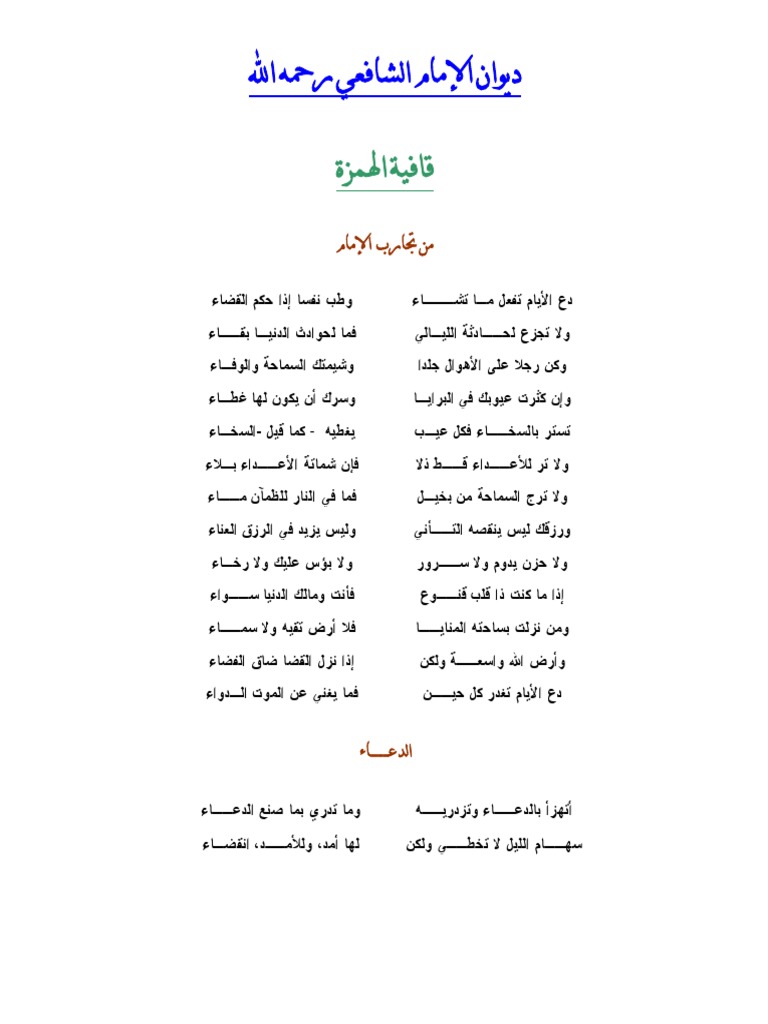 ديوان الإمام الشافعي رحمه الله
قافية الهمزة
من تجارب الإمام
دع الأيام تفعل مـــا تشـــــــاء وطب نفسا إذا حكم القضاء
ولا تجزع لحـــــادثة الليـــالي فما لحوادث الدنيـــا بقـــــاء
وكن رجلا على الأهوال جلدا وشيمتك السماحة والوفـــاء
وإن كثرت عيوبك في البرايـــا وسرك أن يكون لها غطـــاء
تستر بالسخـــــاء فكل عيـــب يغطيه - كما قيل -السخـــاء
ولا تر للأعـــــداء قـــــط ذلا فإن شماتة الأعـــــداء بـــلاء
ولا ترج السماحة من بخيـــل فما في النار للظمآن مـــــاء
ورزقك ليس ينقصه التـــــأني وليس يزيد في الرزق العناء
ولا حزن يدوم ولا ســـــرور ولا بؤس عليك ولا رخـــاء
إذا ما كنت ذا قلب قنـــــوع فأنت ومالك الدنيا ســـــواء
ومن نزلت بساحته المنايـــــا فلا أرض تقيه ولا سمـــــاء
وأرض الله واسعـــــة ولكن إذا نزل القضا ضاق الفضاء
دع الأيام تغدر كل حيـــــن فما يغني عن الموت الـــدواء
الدعـــــاء
أتهزأ بالدعـــــاء وتزدريـــــه وما تدري بما صنع الدعـــــاء
سهـــــام الليل لا تخطـــــي ولكن لها أمد، وللأمـــــد، انقضـــاء